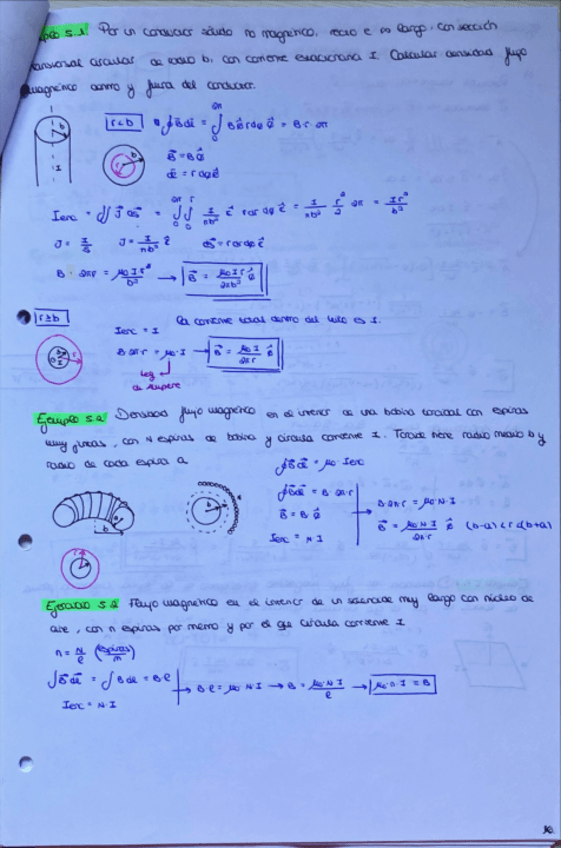 plo 5.1 Por un conductor sólido no magnético, recto e ∞ largo, con sección
transversal circular de radio b, con corriente estacionaria I. Calcular densidad flujo
magnético dentro y fuera del conductor.
r<b ∮B⃗dl⃗ = ∫₀^2π B φ̂ r dφ φ̂ = B·r·2π
B⃗ = B φ̂
dl⃗ = r dφ φ̂
Ienc = ∬ J⃗ ds⃗ = ∫₀^2π ∫₀^r I/πb² ẑ r dr dφ ẑ = I/πb² r²/2 2π = I r²/b²
J = I/S J = I/πb² ẑ ds⃗ = r dr dφ ẑ
B · 2πr = μ₀ I r²/b² → B⃗ = μ₀ I r/2πb² φ̂
r≥b
Ienc = I La corriente total dentro del hilo es I.
B·2π·r = μ₀·I → B⃗ = μ₀ I/2πr φ̂
Ley de Ampere
Ejemplo 5.2 Densidad flujo magnético en el interior de una bobina toroidal con espiras
muy juntas, con N espiras de bobina y circula corriente I. Toroide tiene radio medio b y
radio de cada espira a
∮B⃗dl⃗ = μ₀·Ienc
∮B⃗dl⃗ = B·2π·r
B⃗ = B φ̂
Ienc = N·I
B·2π·r = μ₀·N·I
B⃗ = μ₀·N·I/2πr φ̂ (b-a)<r<(b+a)
Ejercicio 5.2 Flujo magnético en el interior de un solenoide muy largo con núcleo de
aire, con n espiras por metro y por el que circula corriente I
n = N/l (espiras/m)
∫B⃗dl⃗ = ∫B dl = B·l
Ienc = N·I
→ B·l = μ₀·N·I → B = μ₀·N·I/l → μ₀·n·I = B